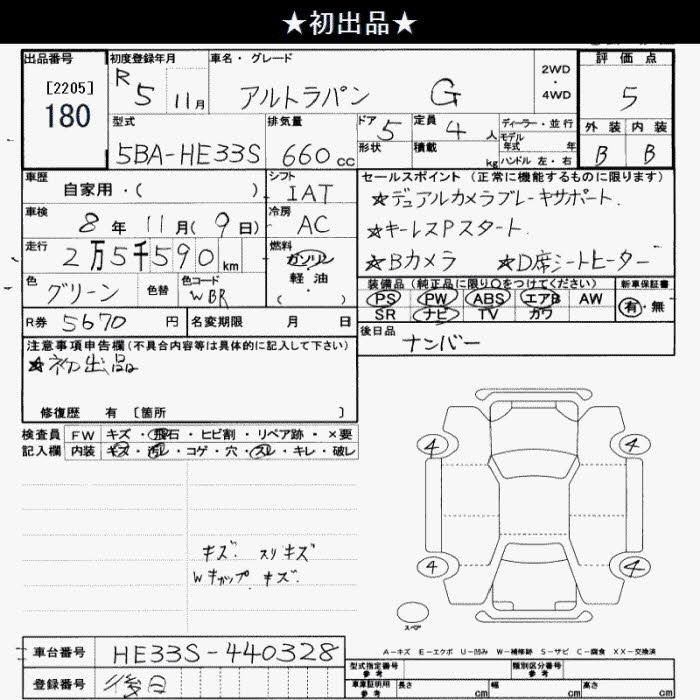 ★初出品★
出品番号
[2205]
180
初度登録年月
R5 11月
車名・グレード
アルトラパン G
2WD
・
4WD
評価点
5
外装 内装
B B
型式
5BA-HE33S
排気量
660cc
ドア 5
形状
定員 4人
積載 kg
ディーラー・並行
モデル
年式 年
ハンドル 左・右
車歴
自家用・( )
シフト
IAT
車検
8年 11月 (9日)
冷房
AC
走行
2万5千590km
燃料
ガソリン
軽油
( )
色
グリーン
色替
色コード
WBR
セールスポイント(正常に機能するものに限ります)
★デュアルカメラブレーキサポート.
★キーレスPスタート.
★Bカメラ ★D席シートヒーター
装備品(純正品に限り○をつけてください)
PS PW ABS エアB AW
SR ナビ TV カワ
新車保証書
有・無
R券 5670円
名変期限 月 日
後日品
ナンバー
注意事項申告欄(不具合内容等は具体的に記入して下さい)
★初出品
修復歴 有 [箇所 ]
検査員
記入欄
FW キズ・飛石・ヒビ割・リペア跡・×要
内装 キズ・汚レ・コゲ・穴・スレ・キレ・破レ
キズ. スリキズ
Wキャップ キズ.
4 4
4 4
スペア
A-キズ E-エクボ U-凹み W-補修跡 S-サビ C-腐食 XX-交換済
車台番号 HE33S-440328
登録番号 後日
型式指定番号
参考
類別区分番号
参考
車庫証明用
参考
長さ cm 幅 cm 高さ cm